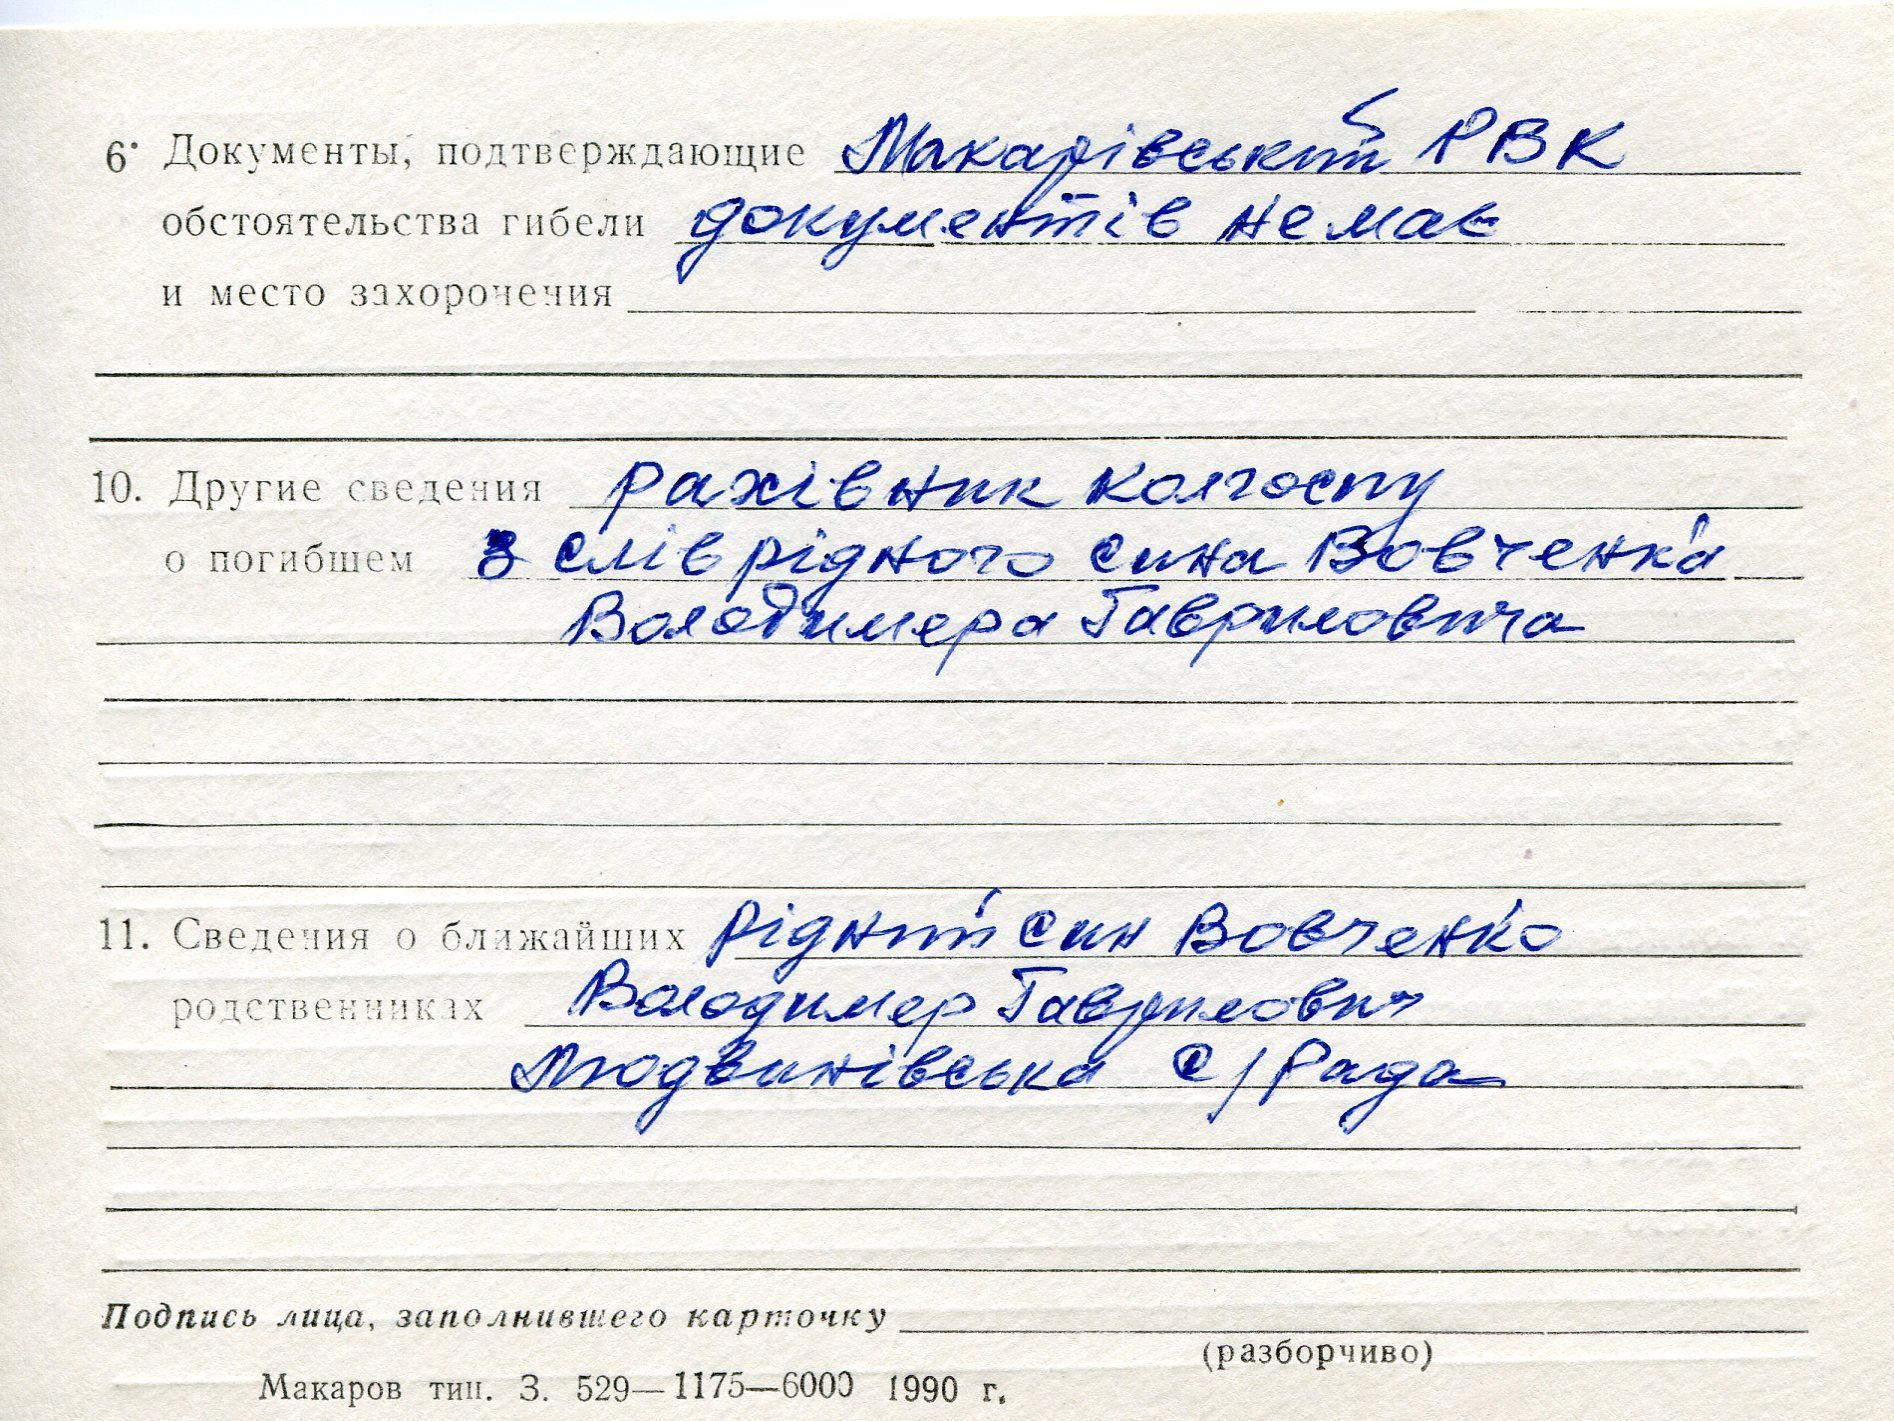 6. Документы, подтверждающие Макарівський РВК
обстоятельства гибели документів немає
и место захоронения
10. Другие сведения рахівник колгоспу
о погибшем з слів рідного сина Вовченка
Володимера Гавриловича
11. Сведения о ближайших рідний син Вовченко
родственниках Володимер Гаврилович
Людвинівська с/Рада
Подпись лица, заполнившего карточку
(разборчиво)
Макаров тип. З. 529—1175—6000 1990 г.